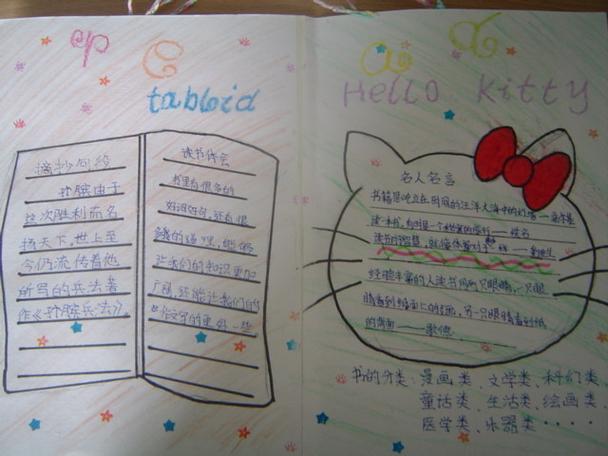 r e a d
tabloid
摘抄句段
孙膑由于
这次胜利而名
扬天下,世上至
今仍流传着他
所写的兵法著
作《孙膑兵法》。
读书体会
书里有很多的
好词好句,还有很
的道理,能够
让我们的知识更加
广阔,还能让我们的
作文写的更好一些
Hello Kitty
名人名言
书籍是屹立在时间的汪洋大海中的灯塔
经验丰富的人读书用两只眼睛,一只眼
睛看到纸面上的话,另一只眼睛看到纸
的背面——歌德
书的分类:漫画类、文学类、科幻类、
童话类、生活类、绘画类、
医学类、乐器类······